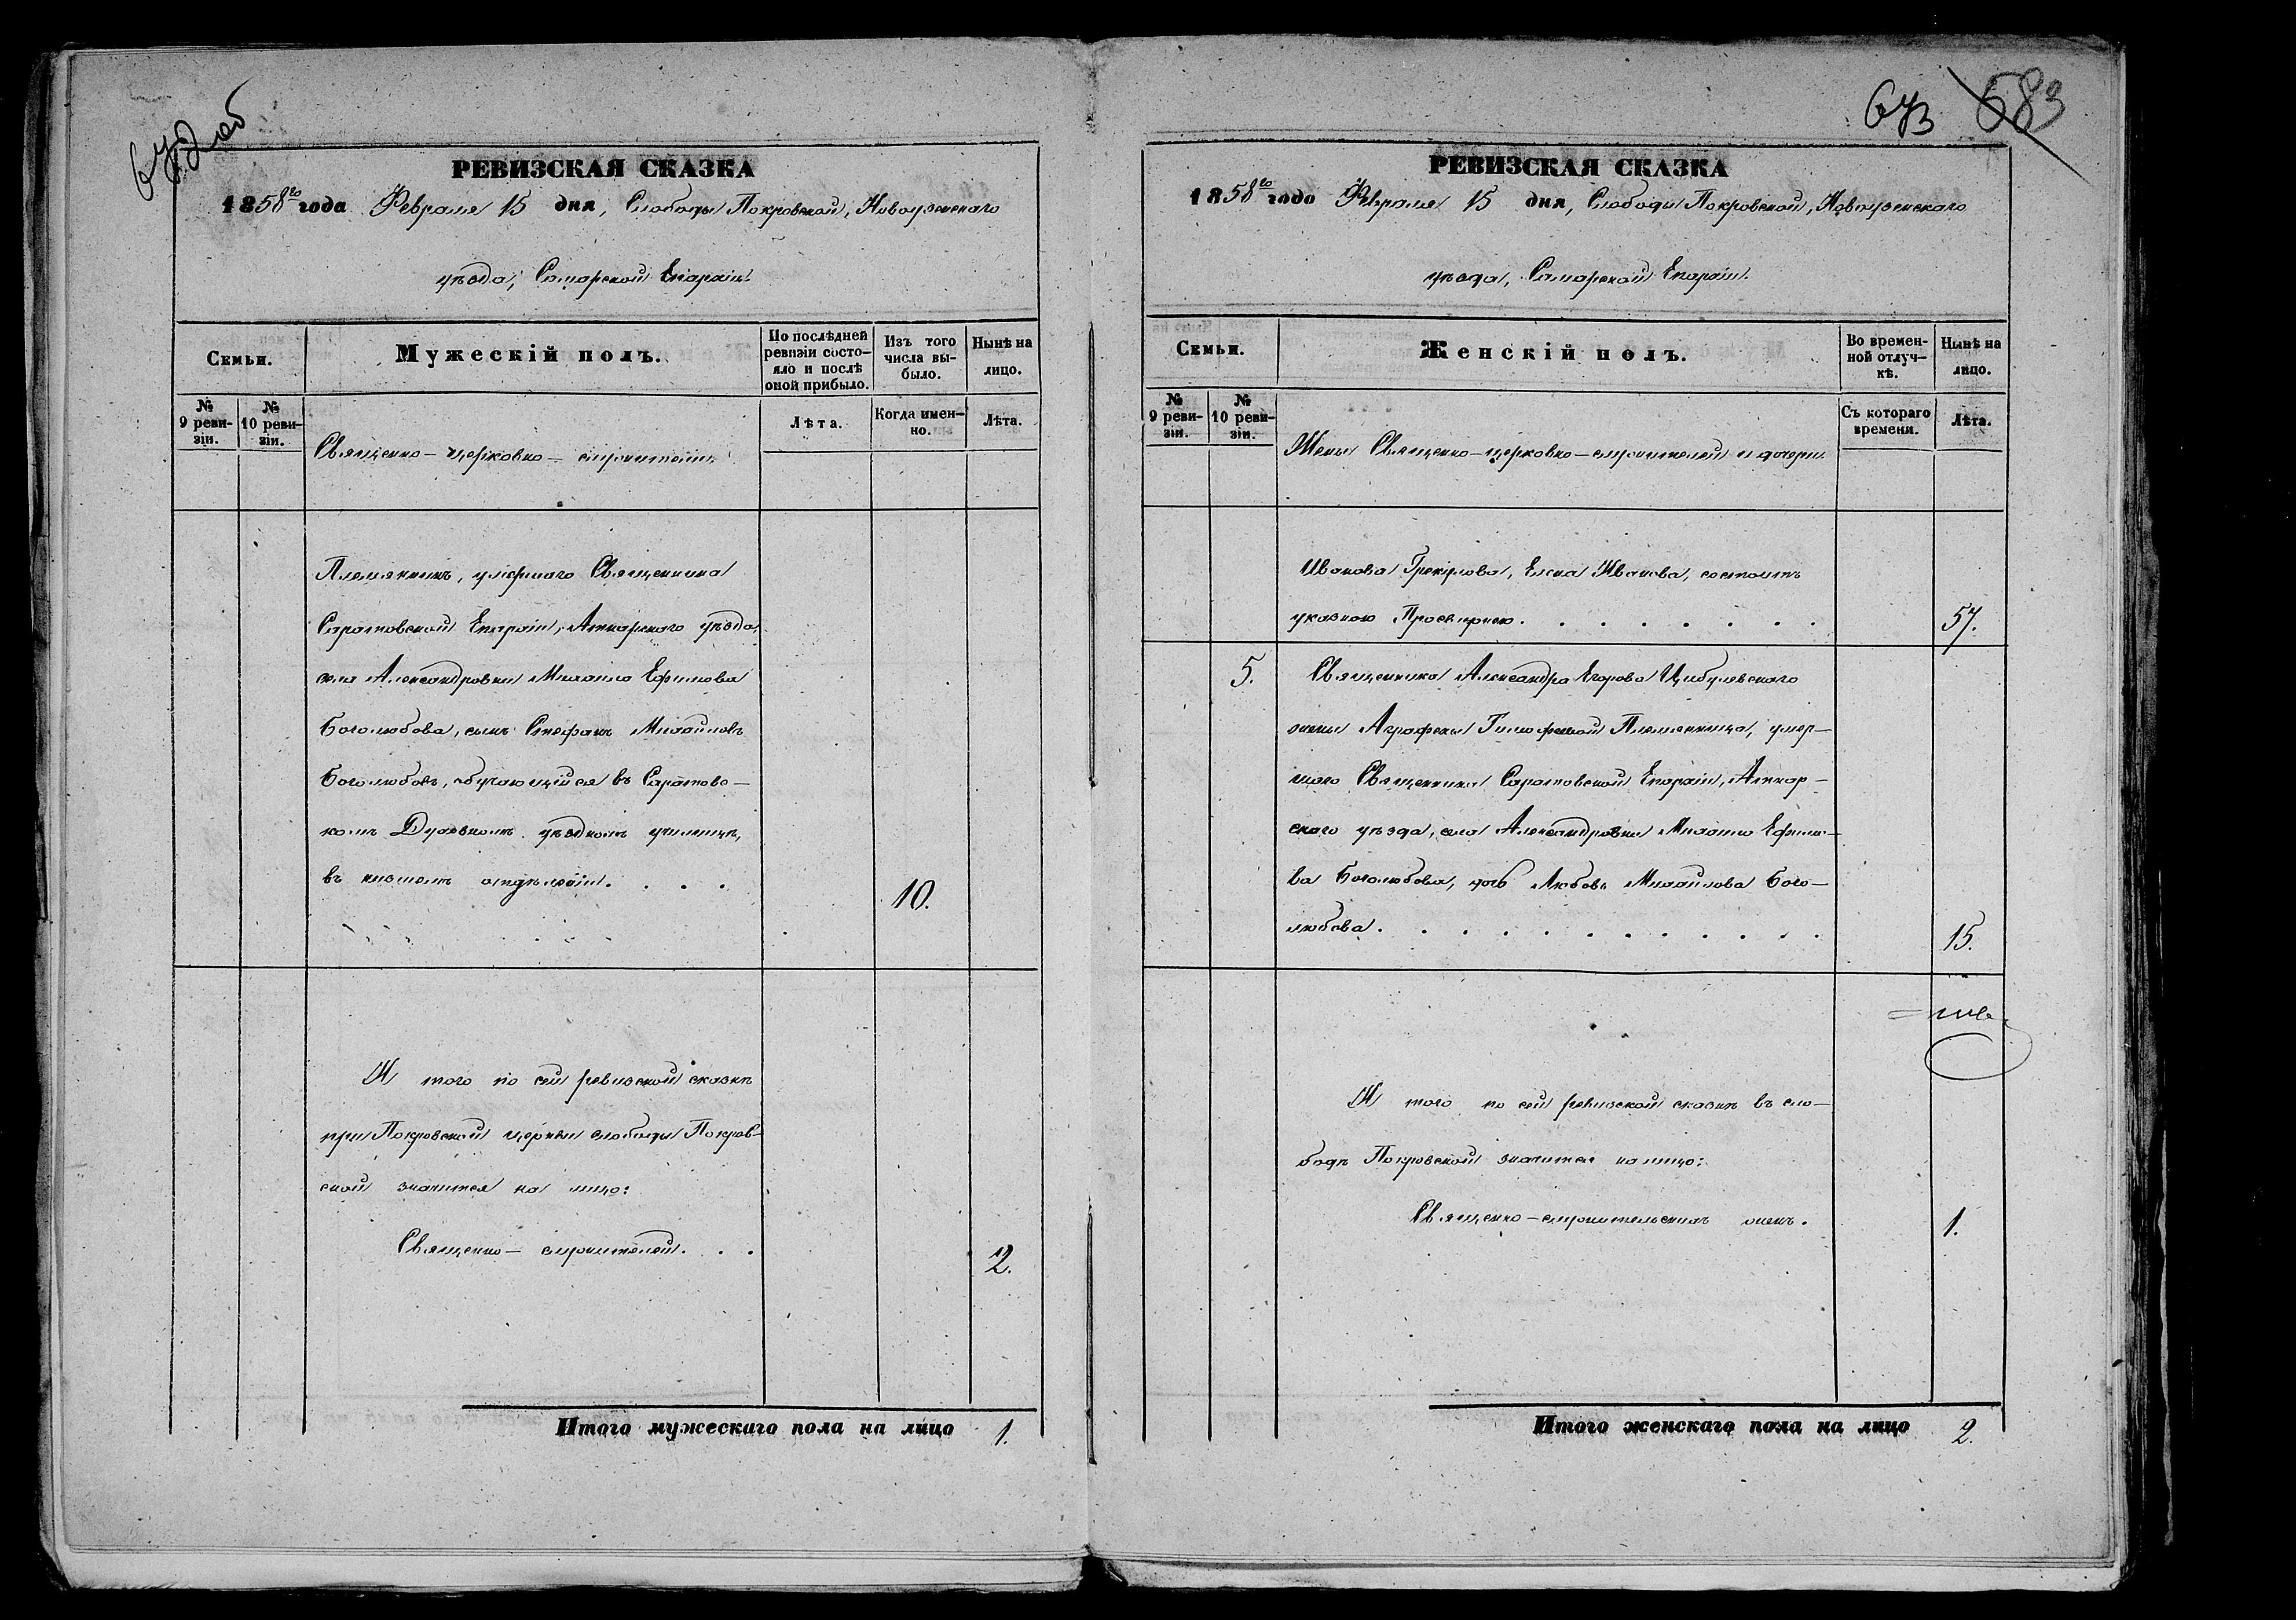 673 583
РЕВИЗСКАЯ СКАЗКА
1858го года Февраля 15 дня, Слободы Покровской, Новоузенскаго
уѣзда, Самарской Епархіи.
Семьи.
Мужескій полъ.
По послѣдней ревизіи состо-
яло и послѣ
оной прибыло.
Изъ того
числа вы-
было.
Нынѣ на
лицо.
№
9 реви-
зіи.
№
10 реви-
зіи.
Священно-церковно-служители
Лѣта.
Когда имен-
но.
Лѣта.
Племянникъ, умершаго Священника
Саратовской Епархіи, Аткарскаго уѣзда,
села Александровки Михаила Ефимова
Боголюбова, сынъ Стефанъ Михайловъ
Боголюбовъ, обучающійся въ Саратовс-
комъ Духовномъ уѣздномъ училищѣ,
въ низшемъ отдѣленіи. . . . 10.
И того по сей ревизской сказкѣ
при Покровской церкви слободы Покров-
ской значится на лицо:
Священно-служителей. . . 2.
Итого мужескаго пола на лицо 1.
РЕВИЗСКАЯ СКАЗКА
1858го года Февраля 15 дня, Слободы Покровской, Новоузенскаго
уѣзда, Самарской Епархіи.
Семьи.
Женскій полъ.
Во времен-
ной отлуч-
кѣ.
Нынѣ на
лицо.
№
9 реви-
зіи.
№
10 реви-
зіи.
Жены Священно-церковно-служителей и дочери.
Съ котораго
времени.
Лѣта.
Иванова Елена Иванова, состоитъ
указною Просвирнею. . . . . . . . 57.
5. Священника Александра Егорова Цибулевскаго
жены Аграфены Тимофеевой Племянница, умер-
шаго Священника Саратовской Епархіи, Аткар-
скаго уѣзда, села Александровки Михаила Ефимо-
ва Боголюбова, дочь Любовь Михайлова Бого-
любова. . . . . . . . . . . . 15.
И того по сей ревизской сказкѣ въ сло-
бодѣ Покровской значится на лицо:
Священно-служительскихъ женъ. 1.
Итого женскаго пола на лицо 2.